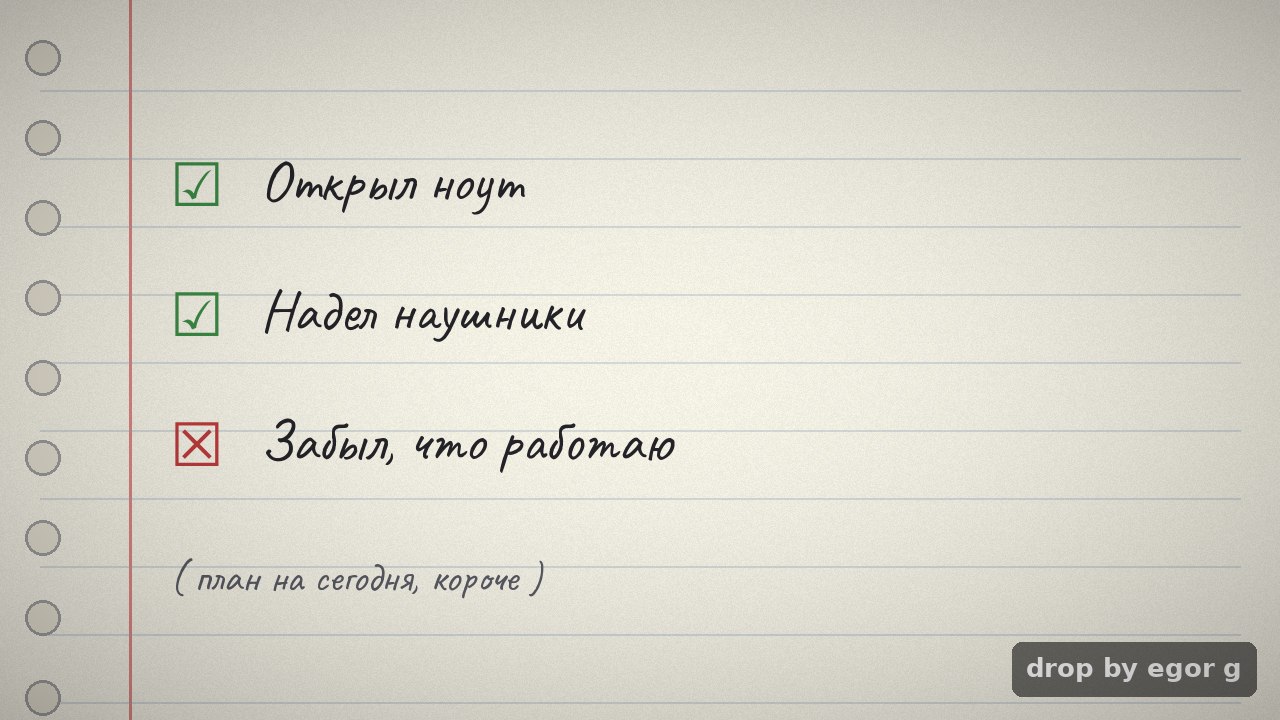 Открыл ноут
Надел наушники
Забыл, что работаю
( план на сегодня, короче )
drop by egor g